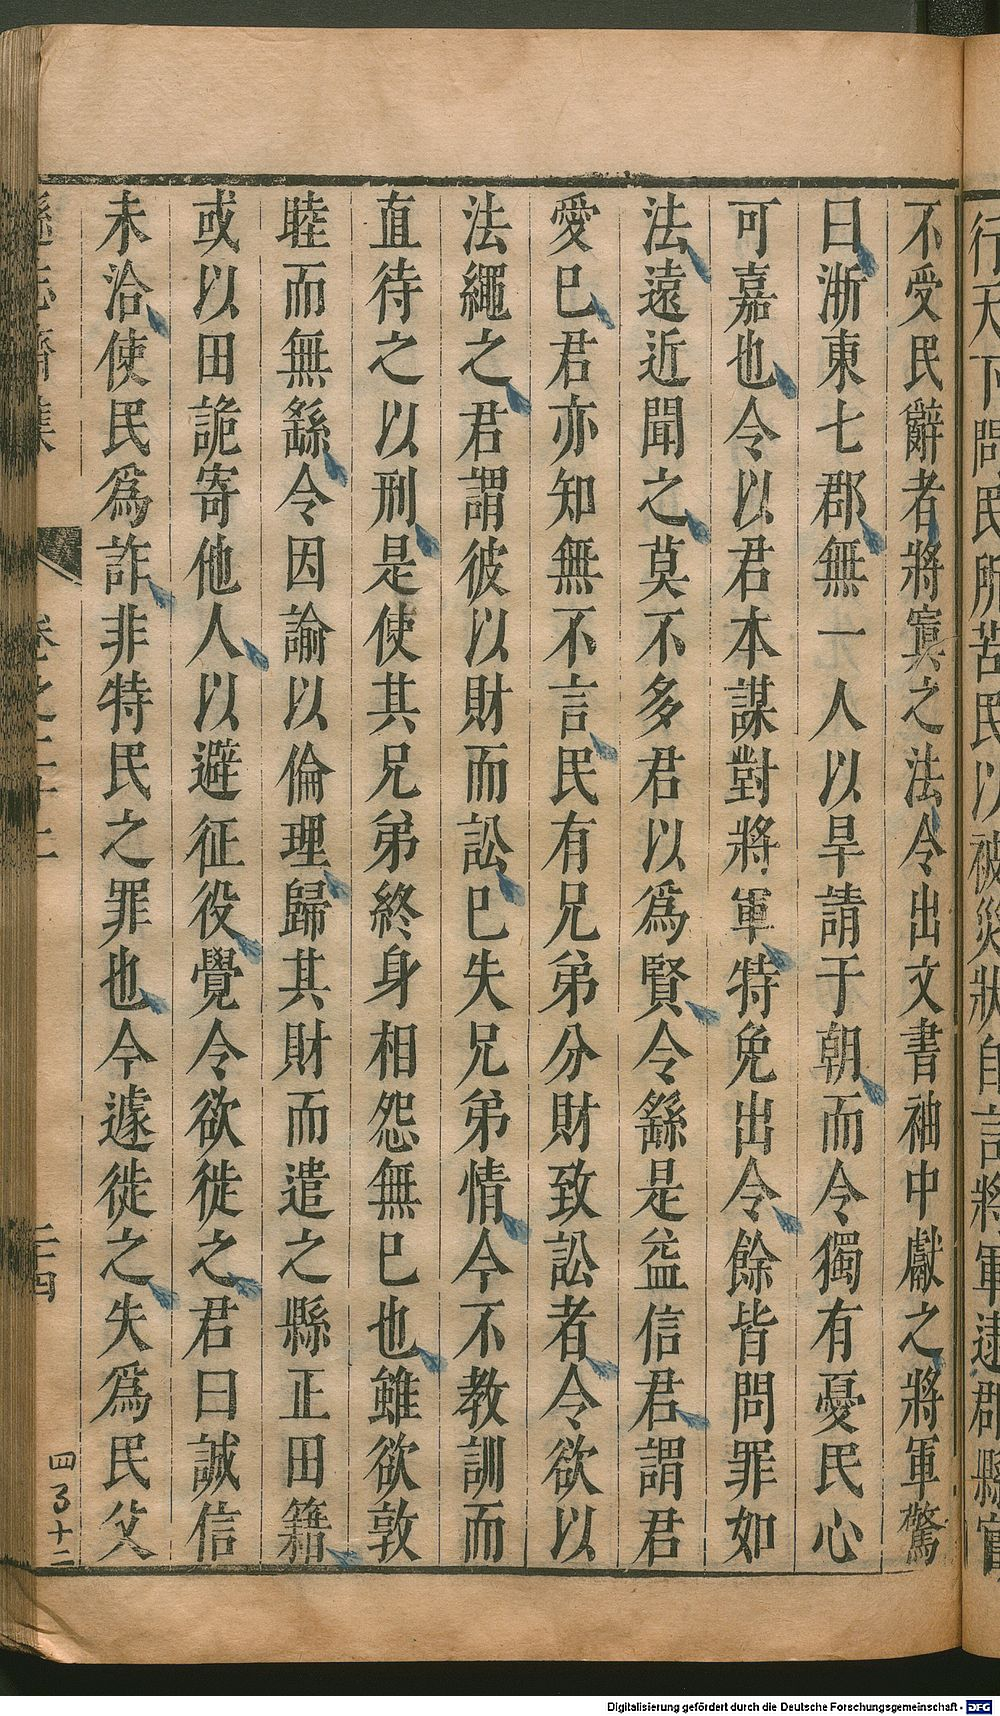 行天下問民所苦民以被災狀自言將軍逮郡縣官
不受民辭者將寘之法令出文書袖中獻之將軍驚
曰浙東七郡無一人以旱請于朝而令獨有憂民心
可嘉也令以君本謀對將軍特免出令餘皆問罪如
法遠近聞之莫不多君以爲賢令繇是益信君謂君
愛已君亦知無不言民有兄弟分財致訟者令欲以
法繩之君謂彼以財而訟已失兄弟情今不教訓而
直待之以刑是使其兄弟終身相怨無已也雖欲敦
睦而無繇令因諭以倫理歸其財而遣之縣正田籍
或以田詭寄他人以避征役覺令欲徙之君曰誠信
未洽使民爲詐非特民之罪也今遽徙之失爲民父
遜志齋集
卷之二十二
二十四
四百十二
Digitalisierung gefördert durch die Deutsche Forschungsgemeinschaft - DFG